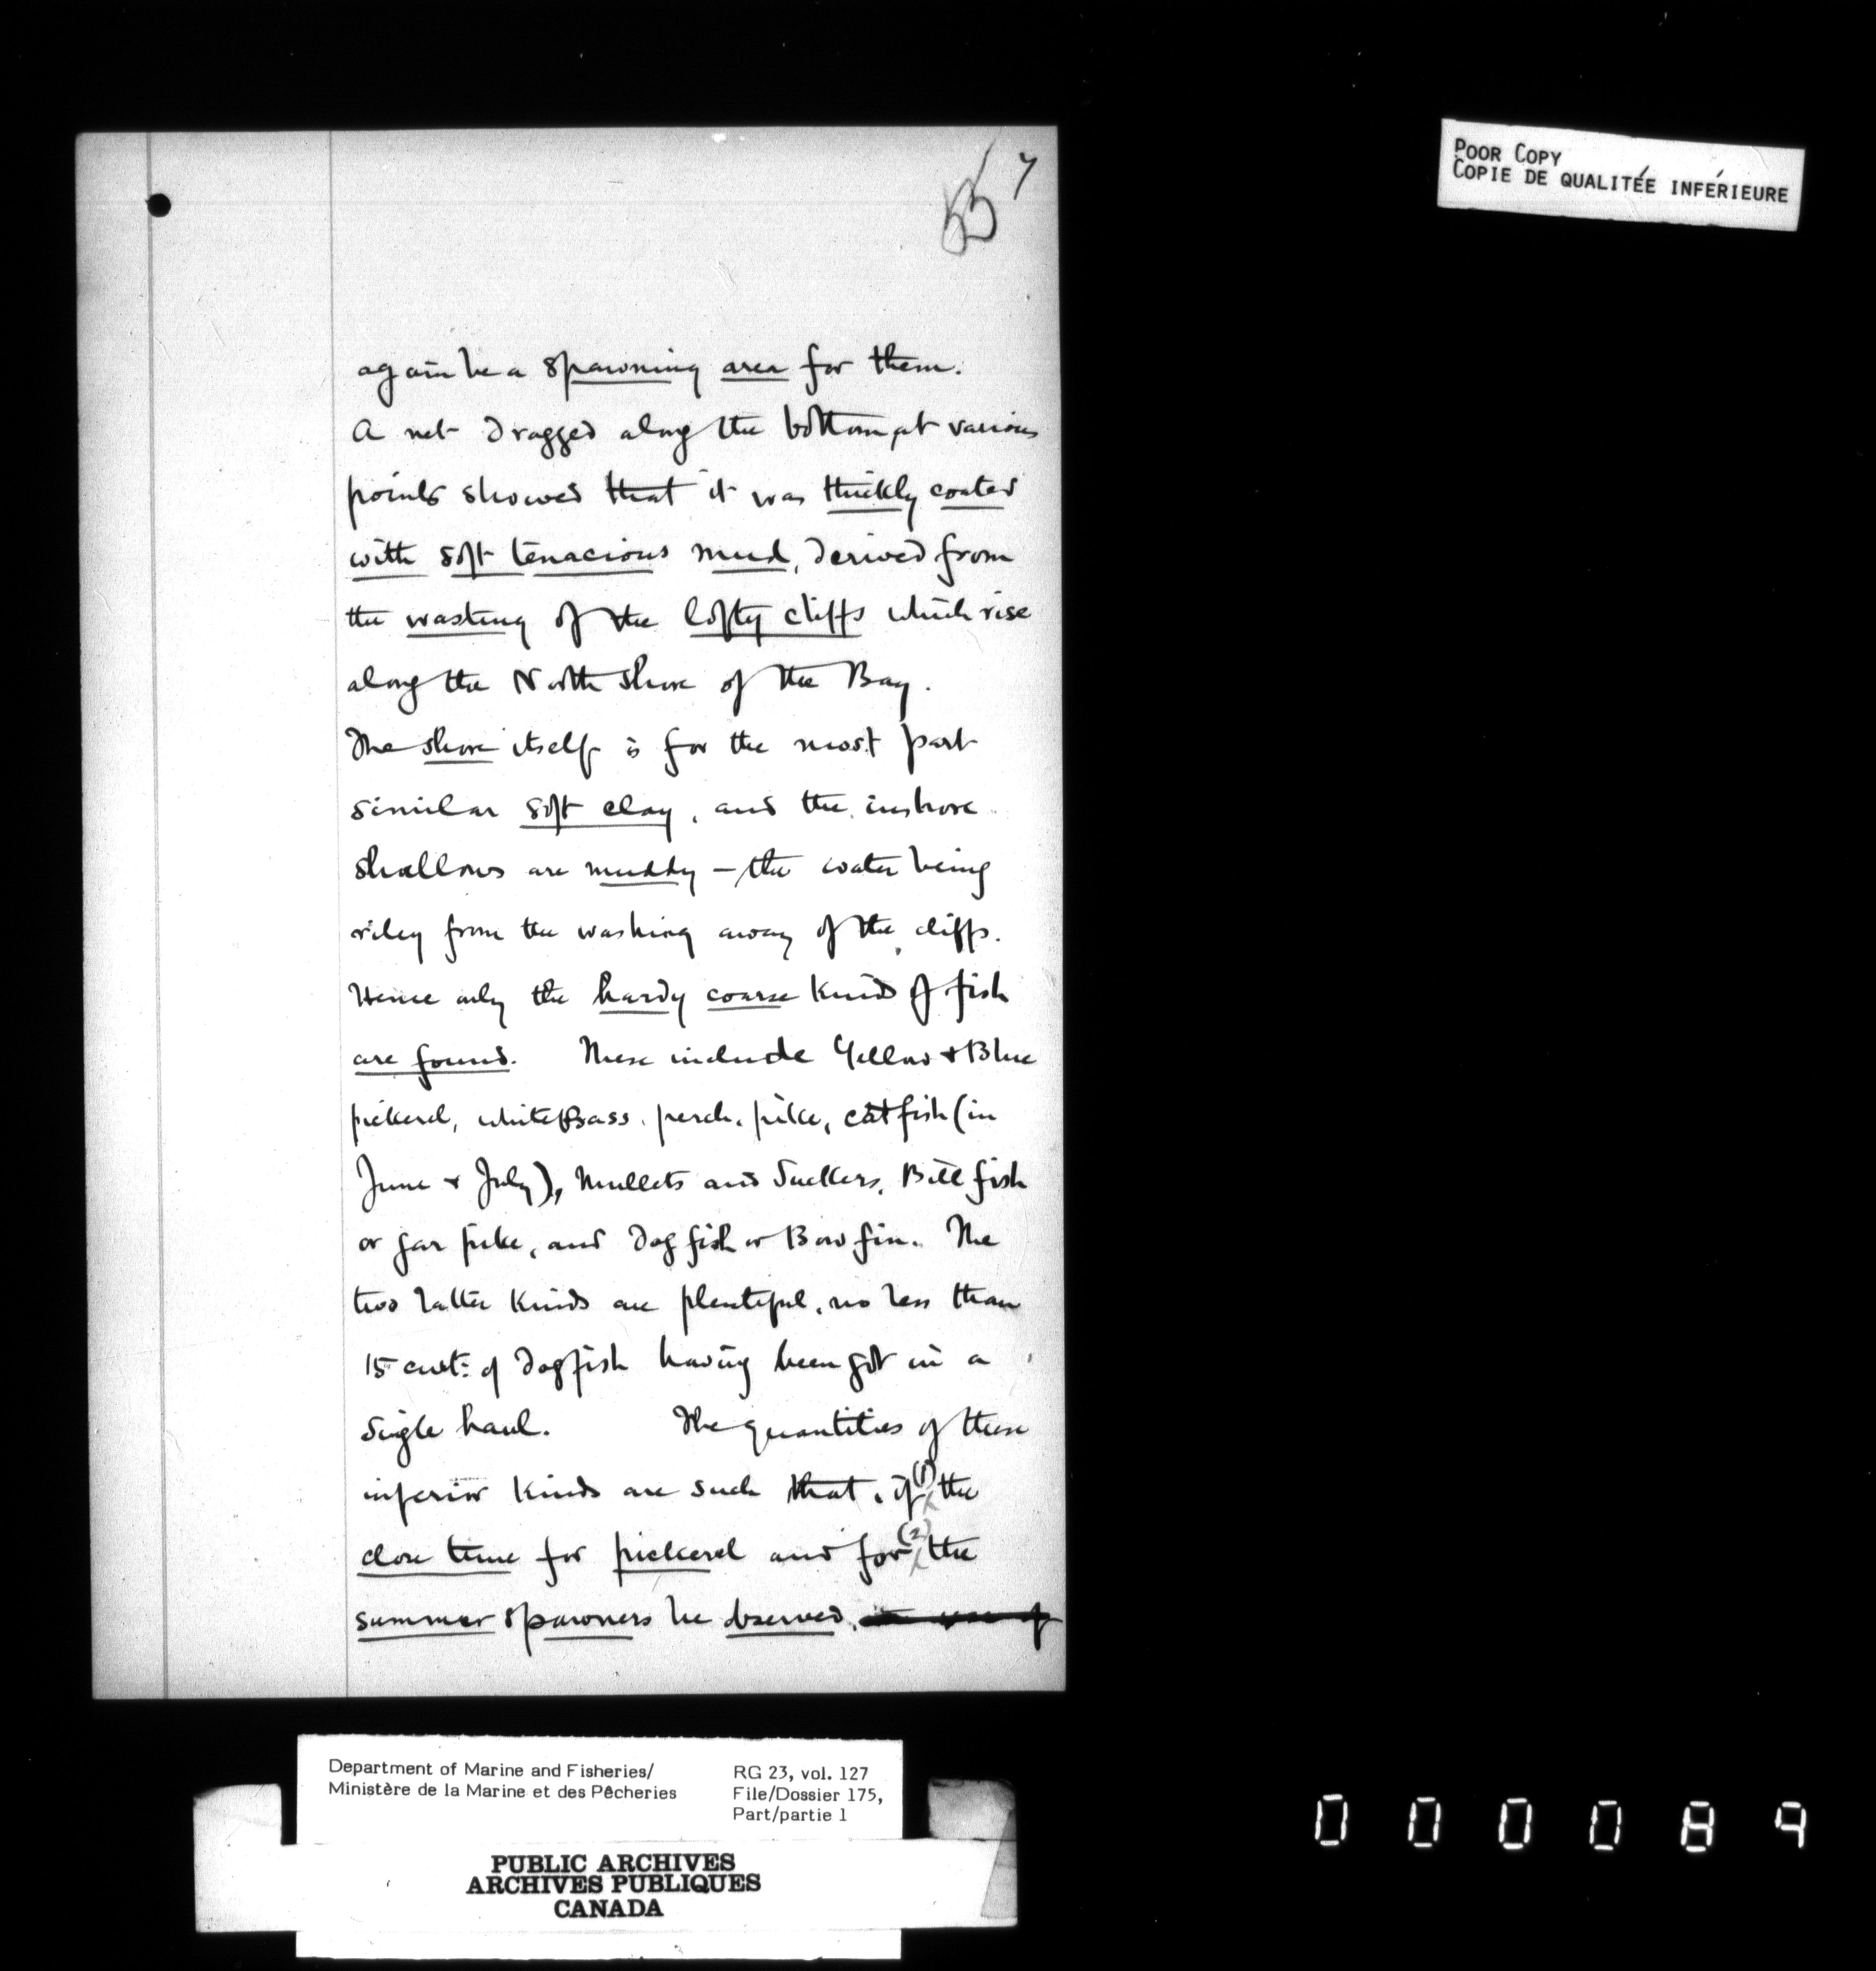 7
POOR COPY
COPIE DE QUALITÉE INFÉRIEURE
again be a spawning area for them.
A net dragged along the bottom at various
points showed that it was thickly coated
with soft tenacious mud, derived from
the wasting of the lofty cliffs which rise
along the North shore of the Bay.
The shore itself is for the most part
similar soft clay, and the inshore
shallows are muddy – the water being
riley from the washing away of the cliffs.
Hence only the hardy coarse kinds of fish
are found. These include Yellow & Blue
pickerel, white Bass, perch, pike, catfish (in
June & July), Mullets and Suckers, Bill fish
or gar pike, and Dog fish or Bow fin. The
two latter kinds are plentiful, no less than
15 cwt: of Dog fish having been got in a
single haul. The quantities of these
inferior kinds are such that, if (1) the
close time for pickerel and for (2) the
summer spawners be observed,
Department of Marine and Fisheries/
Ministère de la Marine et des Pêcheries
RG 23, vol. 127
File/Dossier 175,
Part/partie 1
PUBLIC ARCHIVES
ARCHIVES PUBLIQUES
CANADA
000089